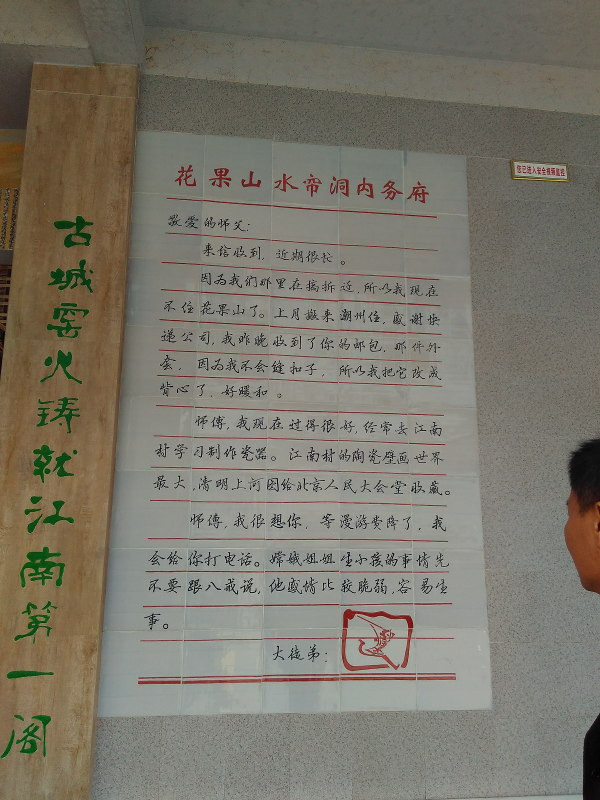 花果山水帘洞内务府
敬爱的师父:
来信收到,近期很忙。
因为我们那里在搞拆迁,所以我现在
不住花果山了。上月搬来潮州住,感谢快
递公司,我昨晚收到了你的邮包,那件外
套,因为我不会缝扣子,所以我把它改成
背心了,好暖和。
师傅,我现在过得很好,经常去江南
村学习制作瓷器。江南村的陶瓷壁画世界
最大,清明上河图给北京人民大会堂收藏。
师傅,我很想你,等漫游费降了,我
会给你打电话。嫦娥姐姐生小孩的事情先
不要跟八戒说,他感情比较脆弱,容易生
事。
大徒弟:
古城窑火铸就江南第一阁
您已进入安全视频监控